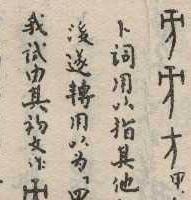 才甲
卜詞用以指其他
後遂轉用以為「四
我試由其初文作